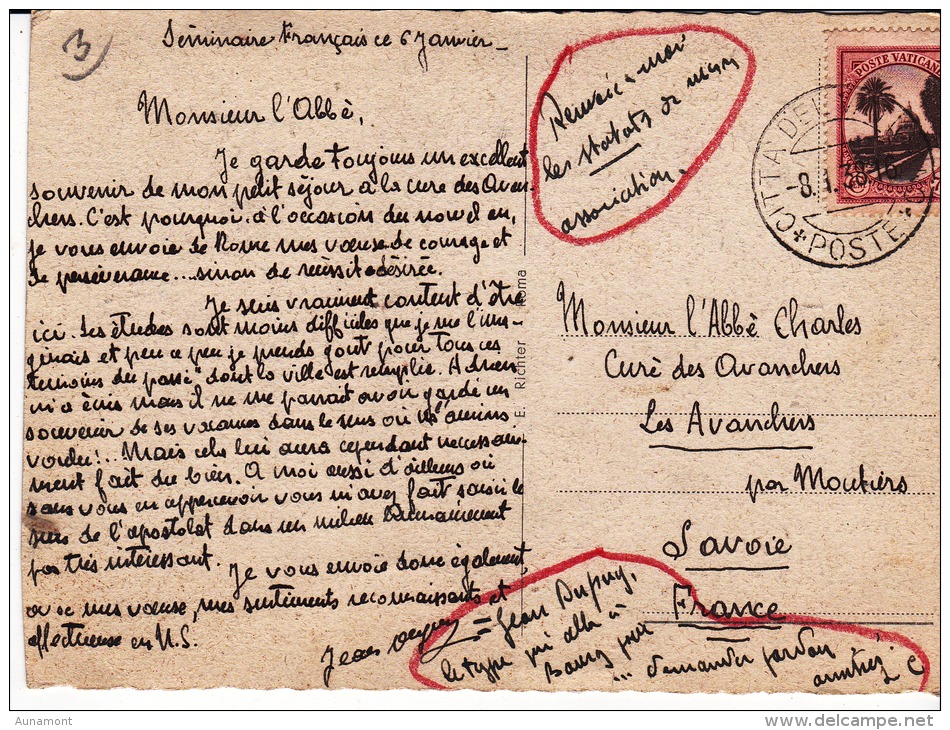 3
Séminaire Français ce 6 Janvier
Monsieur l'Abbé,
Je garde toujours un excellent
souvenir de mon petit séjour à la cure des Avan-
chers. C'est pourquoi à l'occasion du nouvel an,
je vous envoie de Rome mes vœux de courage et
de persévérance....sinon de réussite désirée.
Je suis vraiment content d'être
ici. Les études sont moins difficiles que je me l'ima-
ginais et peu à peu je prends goût pour tous ces
témoins du passé" dont la ville est remplie. Adrien
m'a écrit mais il ne me paraît avoir gardé un
souvenir de ses vacances dans le sens où
Mais cela lui aura cependant nécessaire-
ment fait du bien. A moi aussi d'ailleurs où
sans vous en apercevoir vous m'avez fait saisir le
sens de l'apostolat dans un milieu humainement
pas très intéressant.
Je vous envoie donc également,
avec mes vœux, mes sentiments reconnaissants et
affectueux en N.S.
Jean Dupuy
= Jean Dupuy,
le type qui alla à
pour
... demander pardon
Renvoie-moi
les statuts de
association.
POSTE VATICANE
CITTA DEL
-8.1.
POSTE
E. Richter Roma
Monsieur l'Abbé Charles
Curé des Avanchers
Les Avanchers
par Moutiers
Savoie
France
Aunamont
delcampe.net